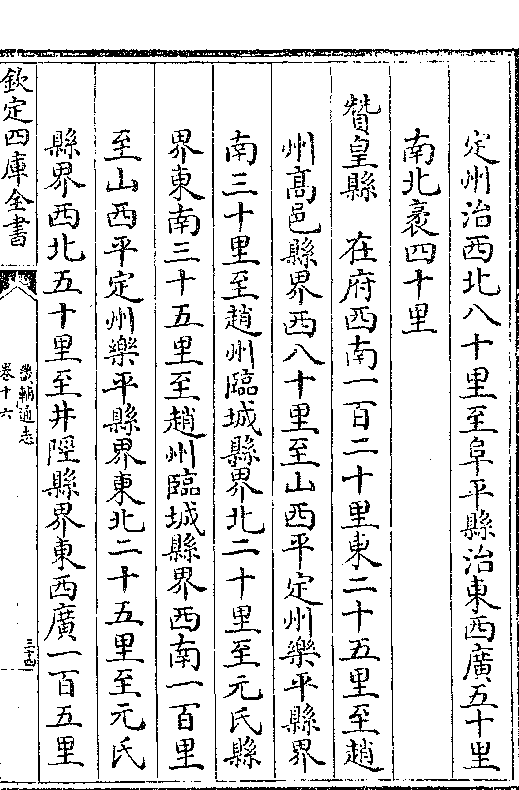 定州治西北八十里至阜平縣治東西廣五十里
南北袤四十里
贊皇縣 在府西南一百二十里東二十五里至趙
州髙邑縣界西八十里至山西平定州樂平縣界
南三十里至趙州臨城縣界北二十里至元氏縣
界東南三十五里至趙州臨城縣界西南一百里
至山西平定州樂平縣界東北二十五里至元氏
縣界西北五十里至井陘縣界東西廣一百五里
欽定四庫全書
畿輔通志
卷十六
三十四